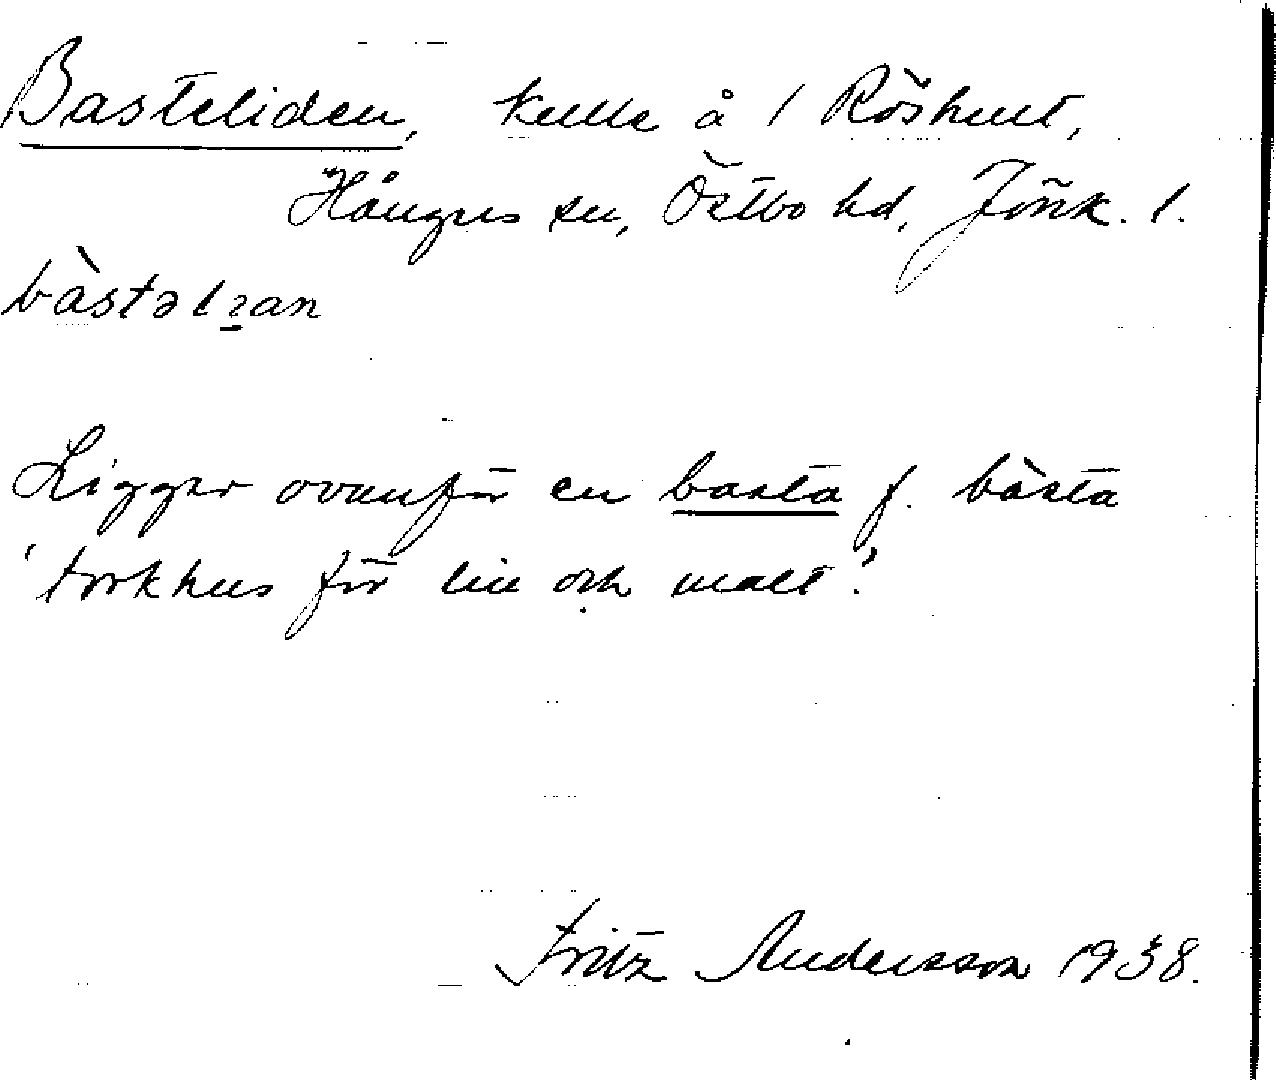 Basteliden, kulle å 1 Röshult,
Hångers sn, Östbo hd, Jönk. l.
bàstəlꝛan
Ligger ovanför en basta f. bàsta
'torkhus för lin och malt'.
Fritz Andersson 1938.